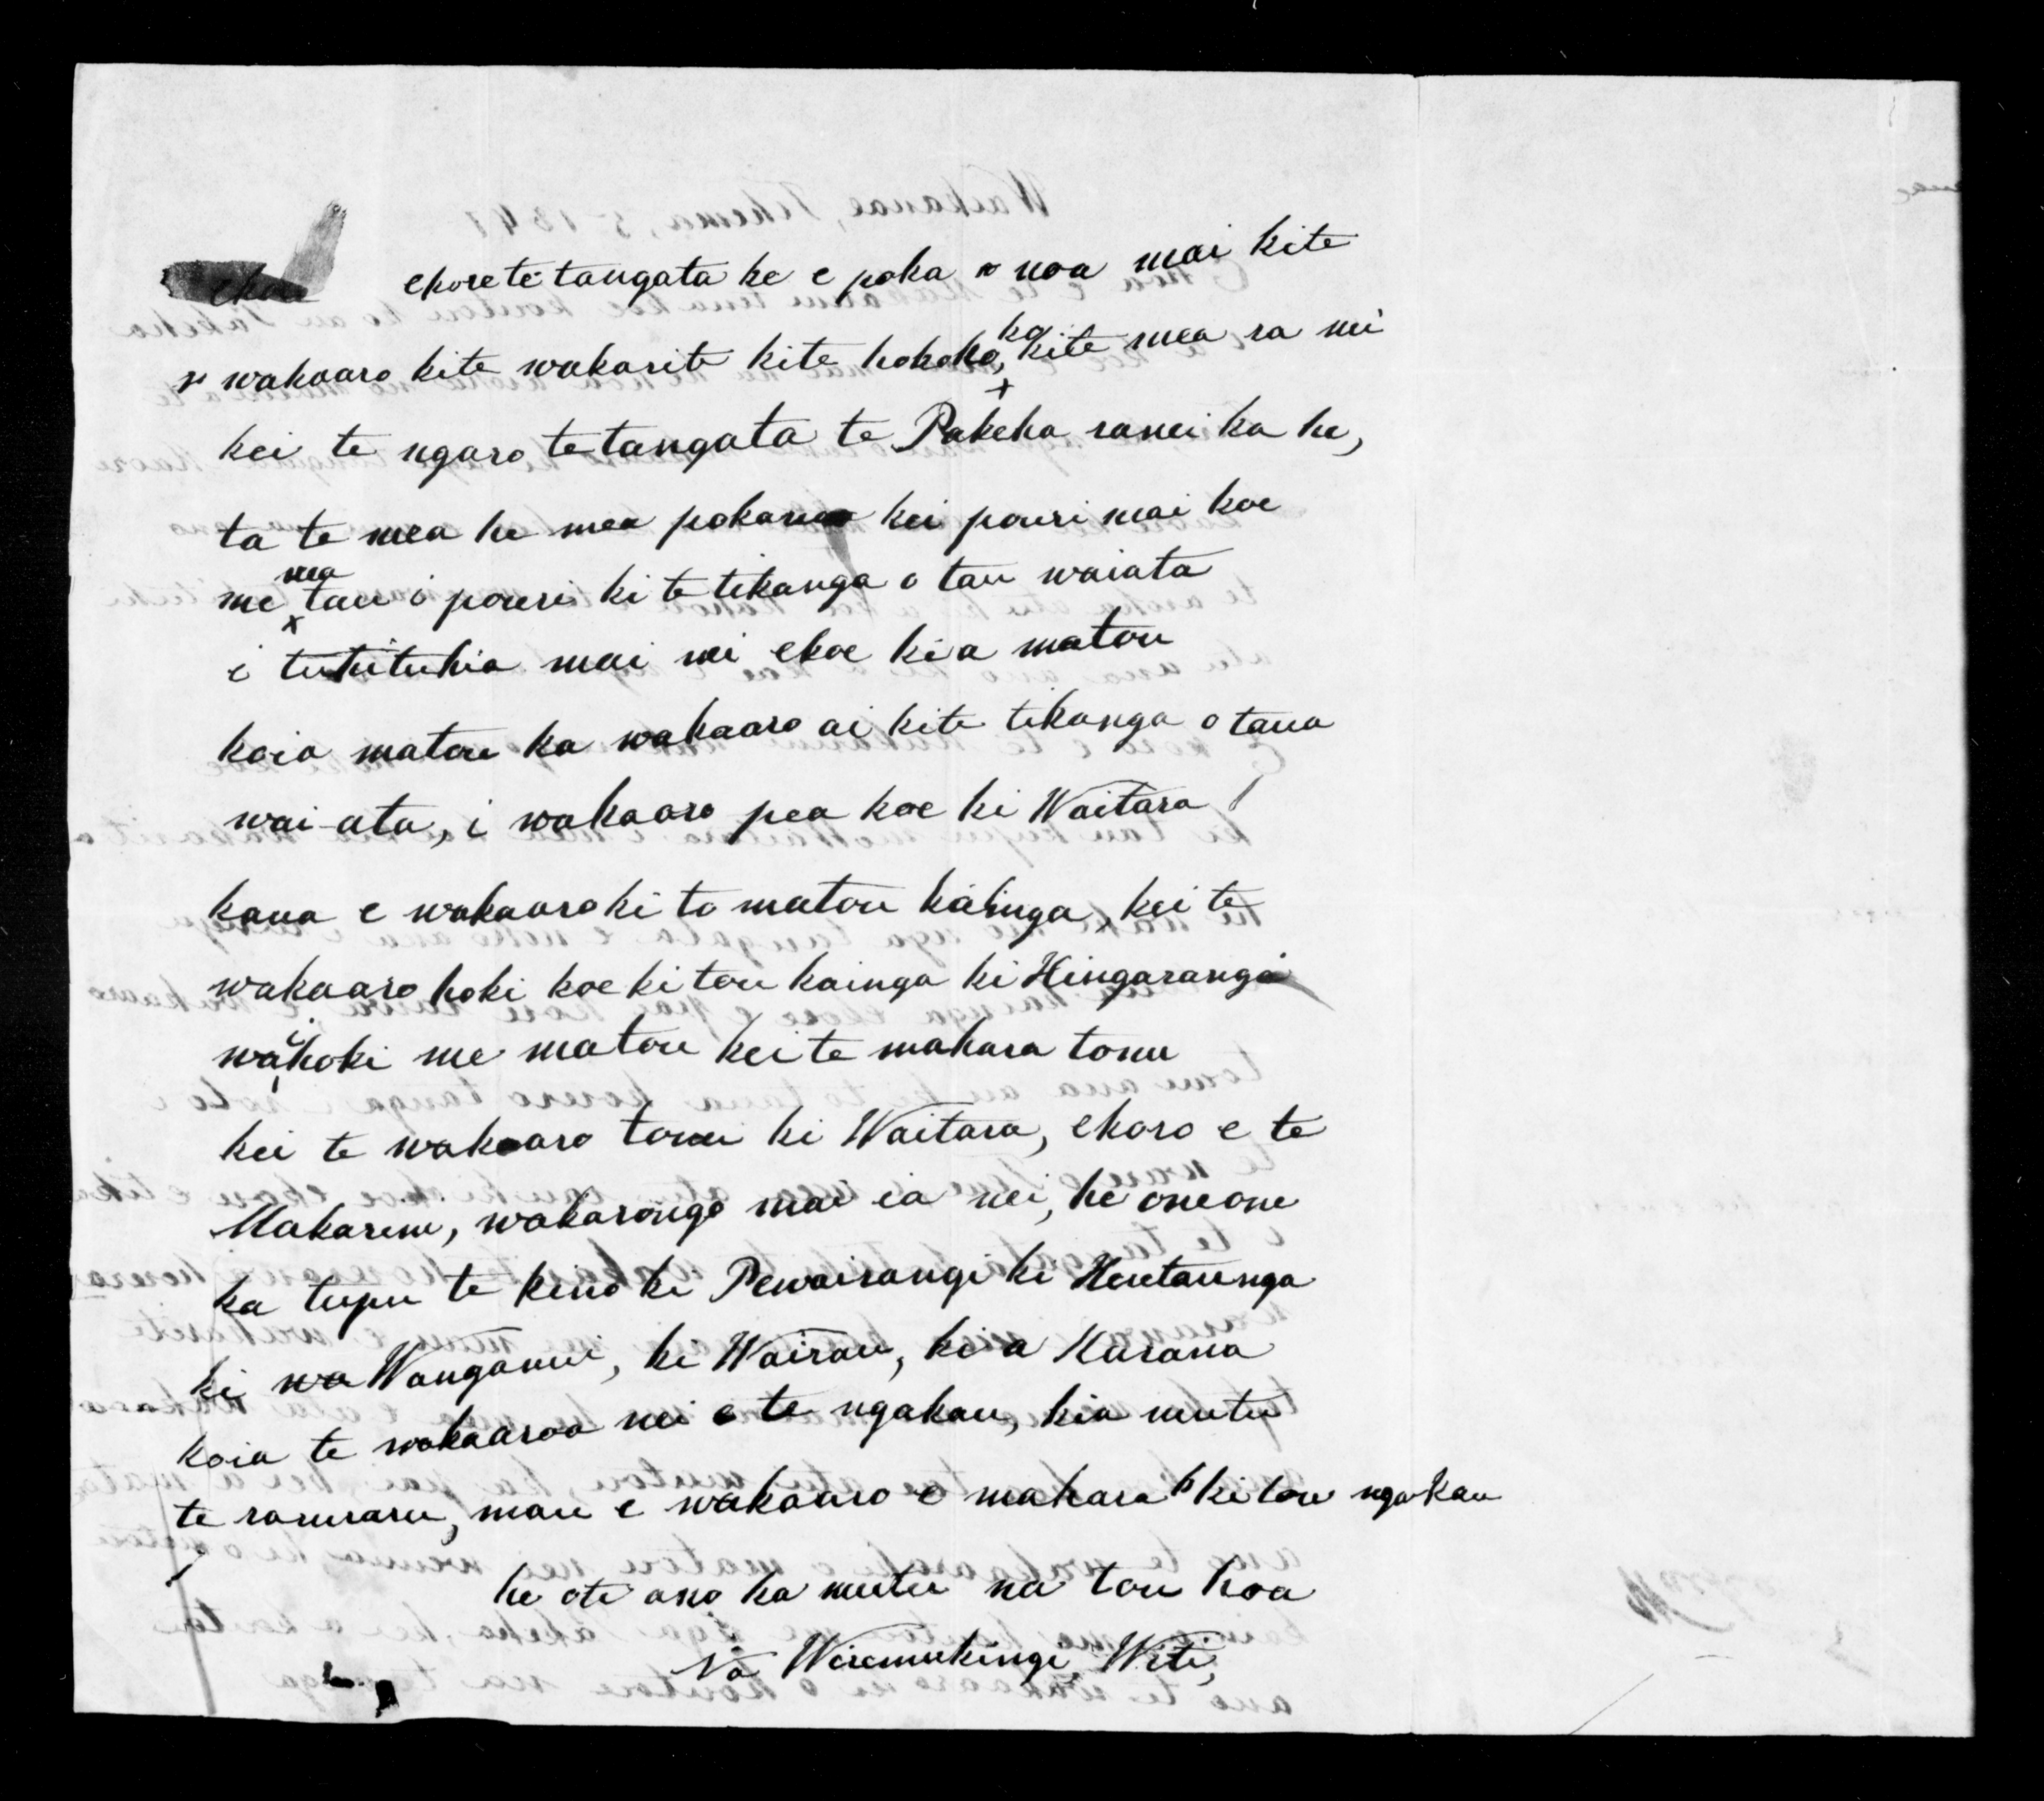 ekore te tangata ke e poka noa mai kite
wakaaro kite wakarite kite hokohoko, kite mea ra nei
kei te ngaro te tangata te Pakeha ranei ka he,
ta te mea he mea pokanoa kei pouri mai koe
me mea tau i pouri ki te tikanga o tau waiata
i tuhituhia mai nei ekoe kia matou
koia matou ka wakaaro ai kite tikanga o taua
wai-ata, i wakaaro pea koe ki Waitara
kaua e wakaaro ki to matou kainga, kei te
wakaaro hoki koe ki tou kainga ki Hingarangi
waihoki me matou kei te mahara tonu
kei te wakaaro tonu ki Waitara, ekoro e te
Makarini, wakarongo mai ia nei, he oneone
ka tupu te kino ki Pewairangi ki Heretaunga
ki wa Wanganui, ki Wairau, ki a Karana
koia te wakaaroa nei e te ngakau, kia mutu
te raruraru, mau e wakaaro e mahara ki tou ngakau
he oti ano ka mutu na tou hoa
Na Wiremukingi, Witi,